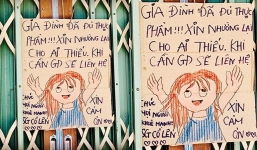 GIA ĐÌNH ĐÃ ĐỦ THỰC
PHẨM!!! XIN NHƯỜNG LẠI
CHO AI THIẾU. KHI
CẦN GĐ SẼ LIÊN HỆ
CHÚC
MỌI NGƯỜI
KHOẺ MẠNH
SG CỐ LÊN
XIN
CẢM
ƠN
GIA ĐÌNH ĐÃ ĐỦ THỰC
PHẨM!!! XIN NHƯỜNG LẠI
CHO AI THIẾU. KHI
CẦN GĐ SẼ LIÊN HỆ
CHÚC
MỌI NGƯỜI
KHOẺ MẠNH
SG CỐ LÊN
XIN
CẢM
ƠN